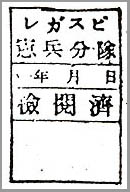 レガスピ
憲兵分隊
年 月 日
檢閲濟